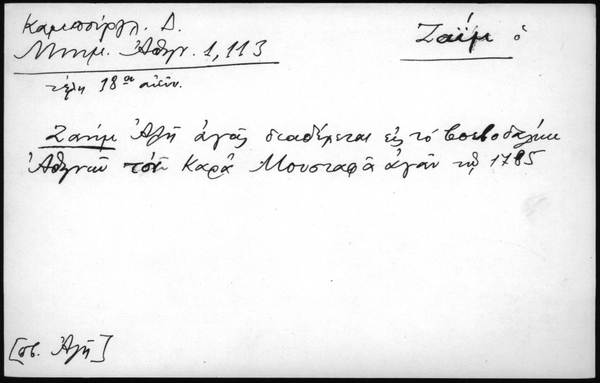 Καμπούρογλ. Δ.
Μνημ. Ἀθην. 1, 113
Ζαΐμ ὁ
τέλη 18ου αἰῶν.
Ζαήμ Ἀλῆ ἀγᾶς διαδέχεται εἰς τὸ βοεβοδαλίκι
Ἀθηνῶν τὸν Καρᾶ Μουσταφᾶ ἀγᾶν τῷ 1785
[σβ. Ἀλῆ]